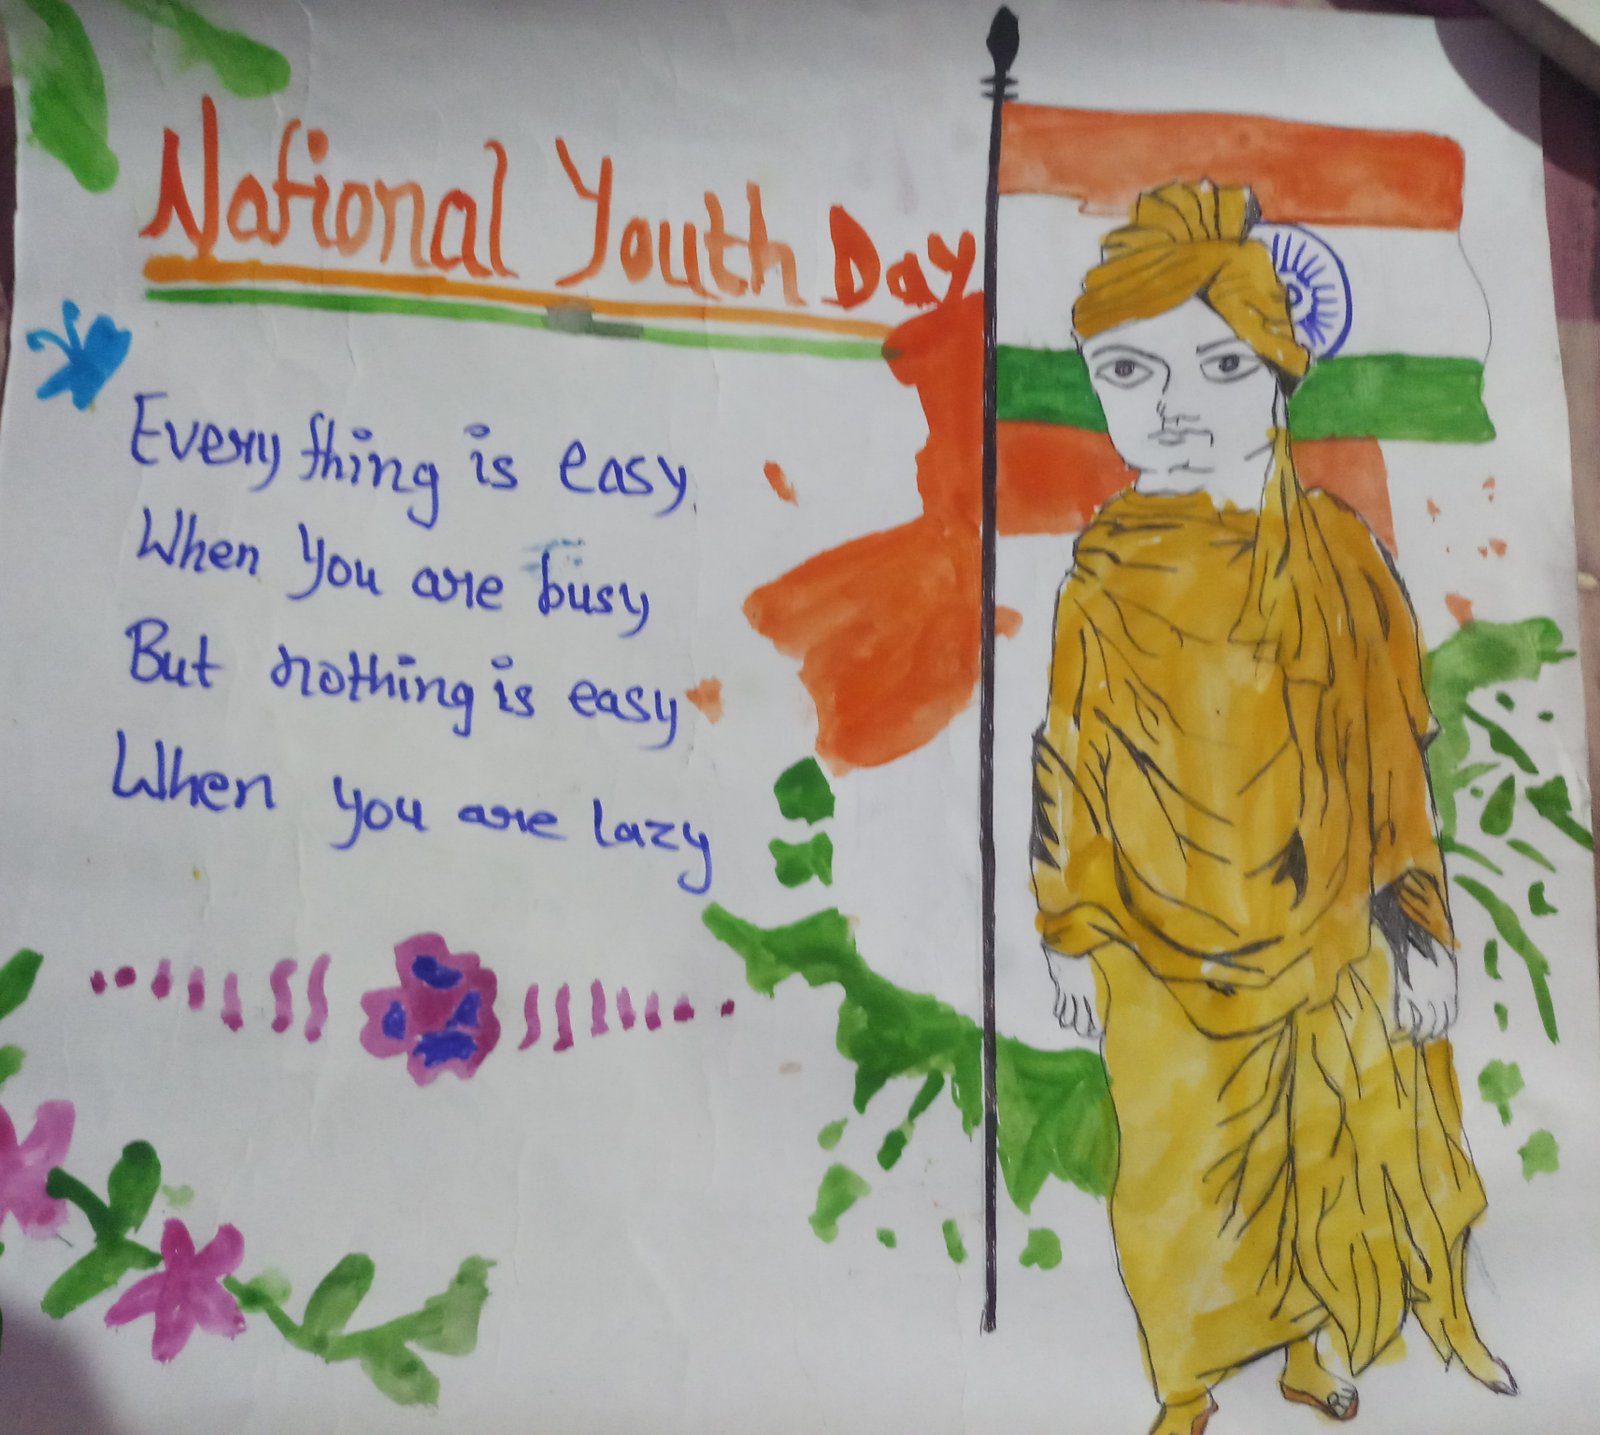 National Youth Day
Everything is easy
When you are busy
But nothing is easy
When you are lazy